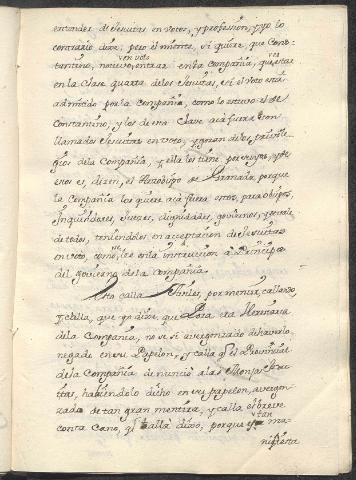 entender de Jesuitas en votos, y profession, y yo lo
contrario dixe; pero el miente, si quiere, que Cons-
tantino, no tuvo ven voto entrar en la Compañia, que estas
en la Clase quarta de los Jesuitas, si el voto está
admitido por la Compañia, como lo estuvo el de
Constantino, y los de esta Clase acá fuera son
llamados Jesuitas en voto, y gozan de los privile-
gios de la Compañia, y ella los tiene por suyos, y de
estos es, dizen, el Arzobispo de Granada, porque
la Compañia los quiere acá fuera estos, para Obispos,
Inquisidores, Juezes, dignidades, goviernos, y
de todos, teniendolos en acceptacion de Jesuitas
en voto, como lee en la instruccion a Principes
del govierno de la Compañia.
Esto calla, por mentir, callando,
y calla, que yo dixe, que Rosa era Hermana
de la Compañia, no se si avergonzado de haverlo
negado en su Papelon, y calla q el Provincial
de la Compañia denunció a las Monjas Jesui-
tas, habiendolo dicho en su papelon, avergon-
zado de tan gran mentira, y calla el breve
contra Cano, q el allá dixo, porque es tan ma-
nifiesta